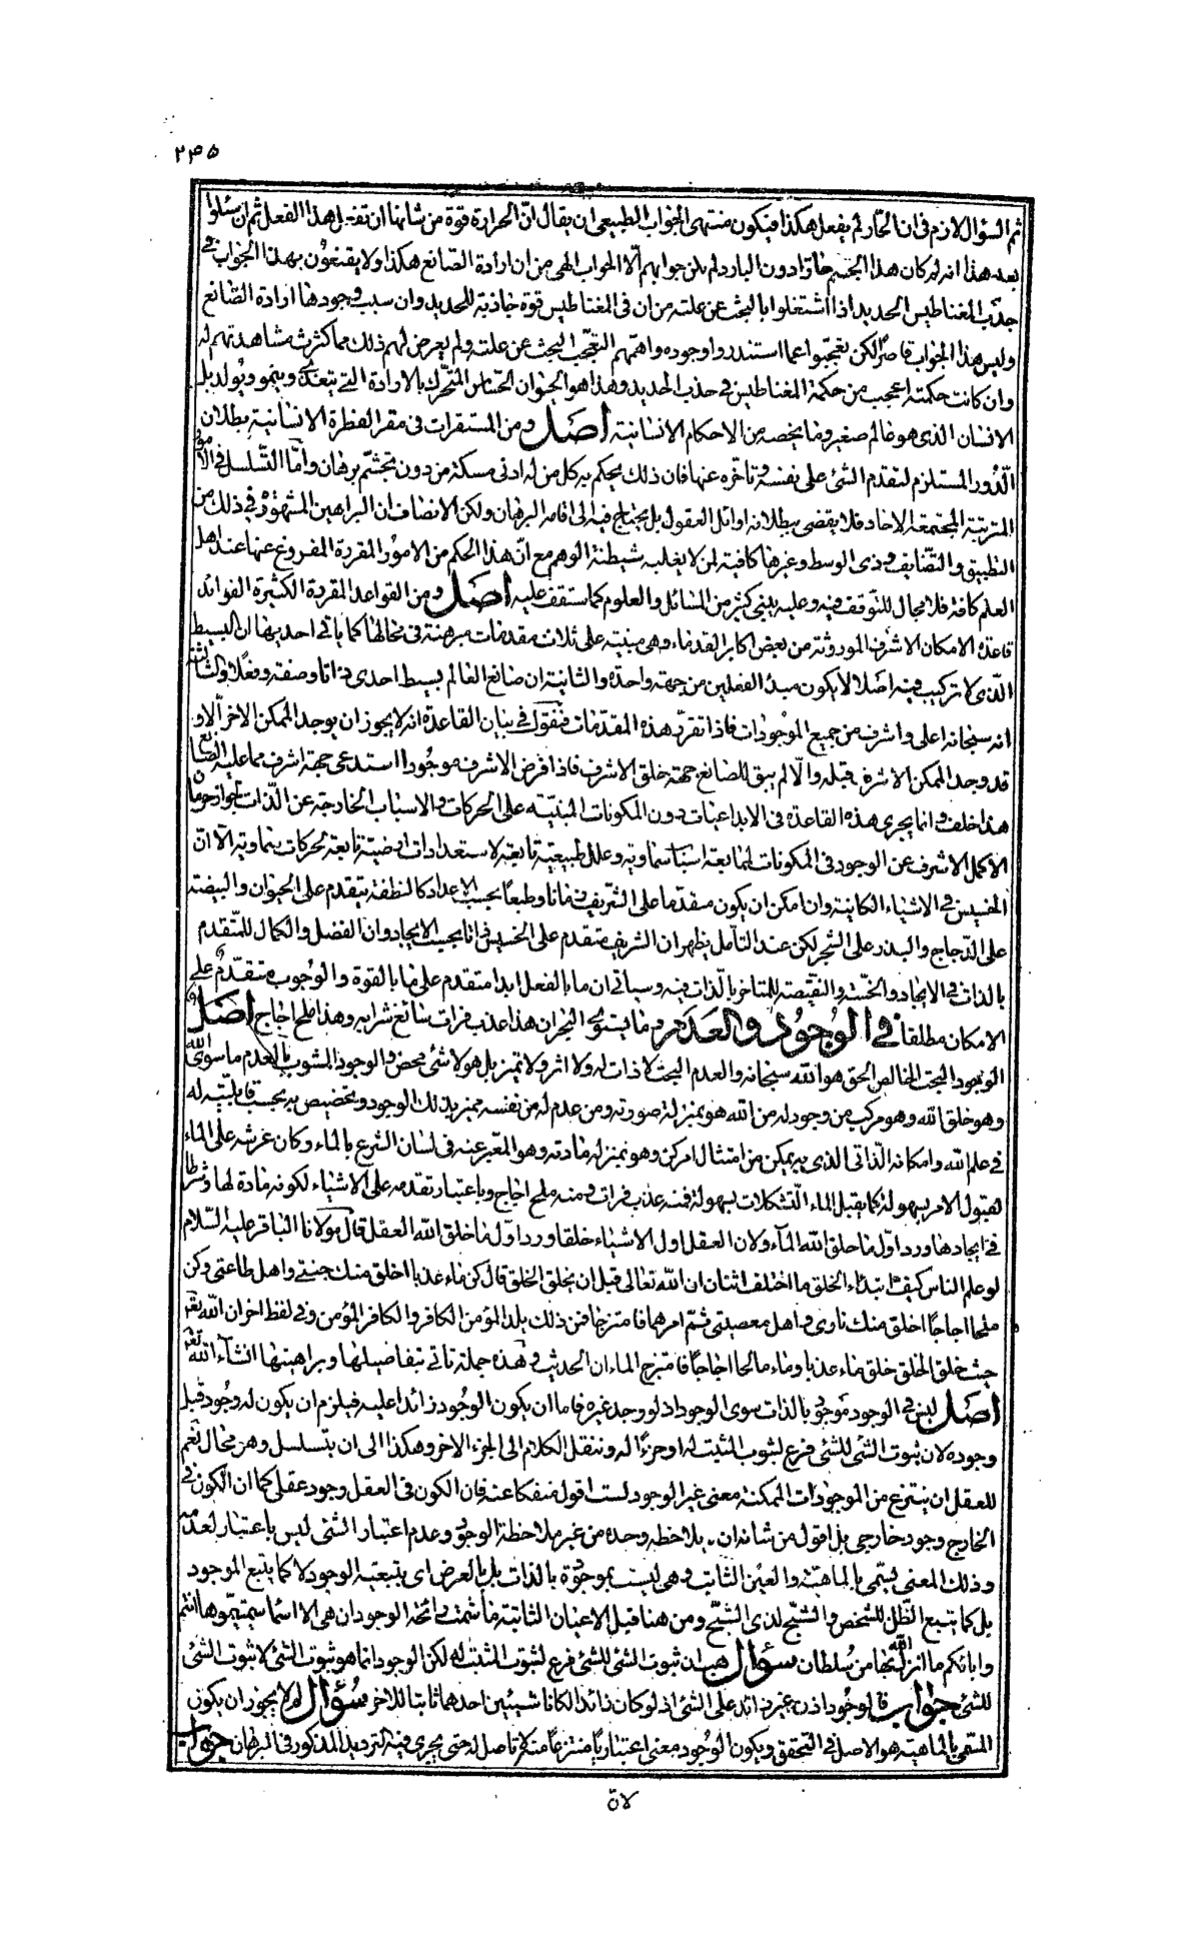 ۲۴۵
ثم السؤال لازم فى ان الحار لم يفعل هكذا فيكون منتهى الجواب الطبيعى ان يقال ان الحرارة قوة من شانها ان تفعل هذا الفعل ثم ان سئلوا
بعد هذا انه لم كان هذا الجسم حارا دون البارد لم يكن جوابهم الا الجواب الالهى من ان ارادة الصانع هكذا ولا يقنعون بهذا الجواب فى
جذب المغناطيس الحديد اذا اشتغلوا بالبحث عن علته من ان فى المغناطيس قوة جاذبة للحديد وان سبب وجودها ارادة الصانع
وليس هذا الجواب قاصرا لكن تعجبوا عما استندروا وجوده واهتمهم التعجب البحث عن علته ولم يعرض لهم ذلك مما كثرت مشاهدتهم له
وان كانت حكمته اعجب من حكمة المغناطيس فى جذب الحديد وهذا هو الحيوان الحساس المتحرك بالارادة التى يتغذى وينمو ويولد بل
الانسان الذى هو عالم صغير وما يخصه من الاحكام الانسانية اصل ومن المستقرات فى مقر الفطرة الانسانية بطلان
الدور المستلزم لتقدم الشئ على نفسه وتاخره عنها فان ذلك يحكم به كل من له ادنى مسكة من دون تجشم برهان واما التسلسل فى الامور
المترتبة المجتمعة الاحاد فلا يقضى ببطلانه اوائل العقول بل يحتاج فيه الى اقامة البرهان ولكن الانصاف ان البراهين المشهورة فى ذلك من
التطبيق والتضايف وذى الوسط وغيرها كافية لمن لا يغلبه شيطنة الوهم مع ان هذا الحكم من الامور المقررة المفروغ عنها عند اهل
العلم كافة فلا مجال للتوقف فيه وعليه يبنى كثير من المسائل والعلوم كما ستقف عليه اصل ومن القواعد المقررة الكثيرة الفوائد
قاعدة الامكان الاشرف الموروثة من بعض اكابر القدماء وهى مبنية على ثلاث مقدمات مبرهنة فى محالها كما ياتى احديها ان البسيط
الذى لا تركيب فيه اصلا لا يكون مبدء الفعلين من جهة واحدة والثانية ان صانع العالم بسيط احدى ذاتا وصفة وفعلا والثالثة
انه سبحانه اعلى واشرف من جميع الموجودات فاذا تقرر هذه المقدمات فنقول فى بيان القاعدة انه لا يجوز ان يوجد الممكن الاخر الا و
قد وجد الممكن الاشرف قبله والا لم يبق للصانع جهة خلق الاشرف فاذا فرض الاشرف موجودا استدعى جهة اشرف مما عليه الصانع
هذا خلف وانما يجرى هذه القاعدة فى الابداعيات دون المكونات المبنية على الحركات والاسباب الخارجة عن الذات لجواز حرمان
الاكمل الاشرف عن الوجود فى المكونات لممانعة اسباب سماوية وعلل طبيعية تابعة لاستعدادات ارضية تابعة لحركات سماوية الا ان
الخسيس فى الاشياء الكائنة وان امكن ان يكون متقدما على الشريف زمانا وطبعا بحسب الاعداد كالنطفة يتقدم على الحيوان والبيضة
على الدجاج والبذر على الشجر لكن عند التأمل يظهر ان الشريف متقدم على الخسيس ذاتا بحسب الايجاد وان الفضل والكمال للمتقدم
بالذات فى الايجاد والخسة والنقيصة للمتاخر بالذات فيه وسياتى ان ما بالفعل ابدا متقدم على ما بالقوة والوجوب متقدم على
الامكان مطلقا فى الوجود والعدم وما يستوى البحران هذا عذب فرات سائغ شرابه وهذا ملح اجاج اصل
الوجود البحت الخالص الحق هو الله سبحانه والعدم البحت لا ذات له ولا اثر ولا تميز بل هو لا شئ محض والوجود المشوب بالعدم ما سوى الله
وهو خلق الله وهو مركب من وجود له من الله هو بمنزلة صورته ومن عدم له من نفسه مميز بذلك الوجود وتخصيص به بحسب قابليته له
فى علم الله وامكانه الذاتى الذى به يمكن من امتثال امر كن وهو بمنزلة مادته وهو المعبر عنه فى لسان الشرع بالماء وكان عرشه على الماء
لقبول الامر بسهولة كما يقبل الماء التشكلات بسهولة فمنه عذب فرات ومنه ملح اجاج وباعتبار تقدمه على الاشياء لكونه مادة لها وشرطا
فى ايجادها ورد اول ما خلق الله الماء ولان العقل اول الاشياء خلقا ورد اول ما خلق الله العقل قال مولانا الباقر عليه السلام
لو علم الناس كيف ابتداء الخلق ما اختلف اثنان ان الله تعالى قبل ان يخلق الخلق قال كن ماء عذبا اخلق منك جنتى واهل طاعتى وكن
ملحا اجاجا اخلق منك نارى واهل معصيتى ثم امرهما فامتزجا فمن ذلك يلد المؤمن الكافر والكافر المؤمن وفى لفظ اخر ان الله تعالى
حيث خلق الخلق خلق ماء عذبا وماء مالحا اجاجا فامتزج الماءان الحديث وهذه جملة تاتى تفاصيلها وبراهينها انشاء الله تعالى
اصل ليس فى الوجود موجود بالذات سوى الوجود اذ لو وجد غيره فاما ان يكون الوجود زائدا عليه فيلزم ان يكون له وجود قبل
وجوده لان ثبوت الشئ للشئ فرع لثبوت المثبت له او جزءا له وننقل الكلام الى الجزء الاخر وهكذا الى ان يتسلسل وهو محال نعم
للعقل ان ينتزع من الموجودات الممكنة معنى غير الوجود لست اقول منفكا عنه فان الكون فى العقل وجود عقلى كما ان الكون فى
الخارج وجود خارجى بل اقول من شانه ان يلاحظه وحده من غير ملاحظة الوجود وعدم اعتبار الشئ ليس باعتبار لعدمه
وذلك المعنى يسمى بالماهية والعين الثابت وهى ليست بموجودة بالذات بل بالعرض اى بتبعية الوجود لا كما يتبع الموجود
بل كما يتبع الظل للشخص والشبح لذى الشبح ومن هنا قيل الاعيان الثابتة ما شمت رائحة الوجود ان هى الا اسماء سميتموها انتم
واباؤكم ما انزل الله بها من سلطان سؤال هب ان ثبوت الشئ للشئ فرع لثبوت المثبت له لكن الوجود انما هو ثبوت الشئ لا ثبوت الشئ
للشئ جواب فالوجود اذن غير زائد على الشئ اذ لو كان زائدا لكانا شيئين احدهما ثابتا للاخر سؤال لم لا يجوز ان يكون
المسمى بالماهية هو الاصل فى التحقق ويكون الوجود معنى اعتباريا منتزعا منه لا تاصل له حتى يجرى فيه الترديد المذكور فى البرهان جواب
لان